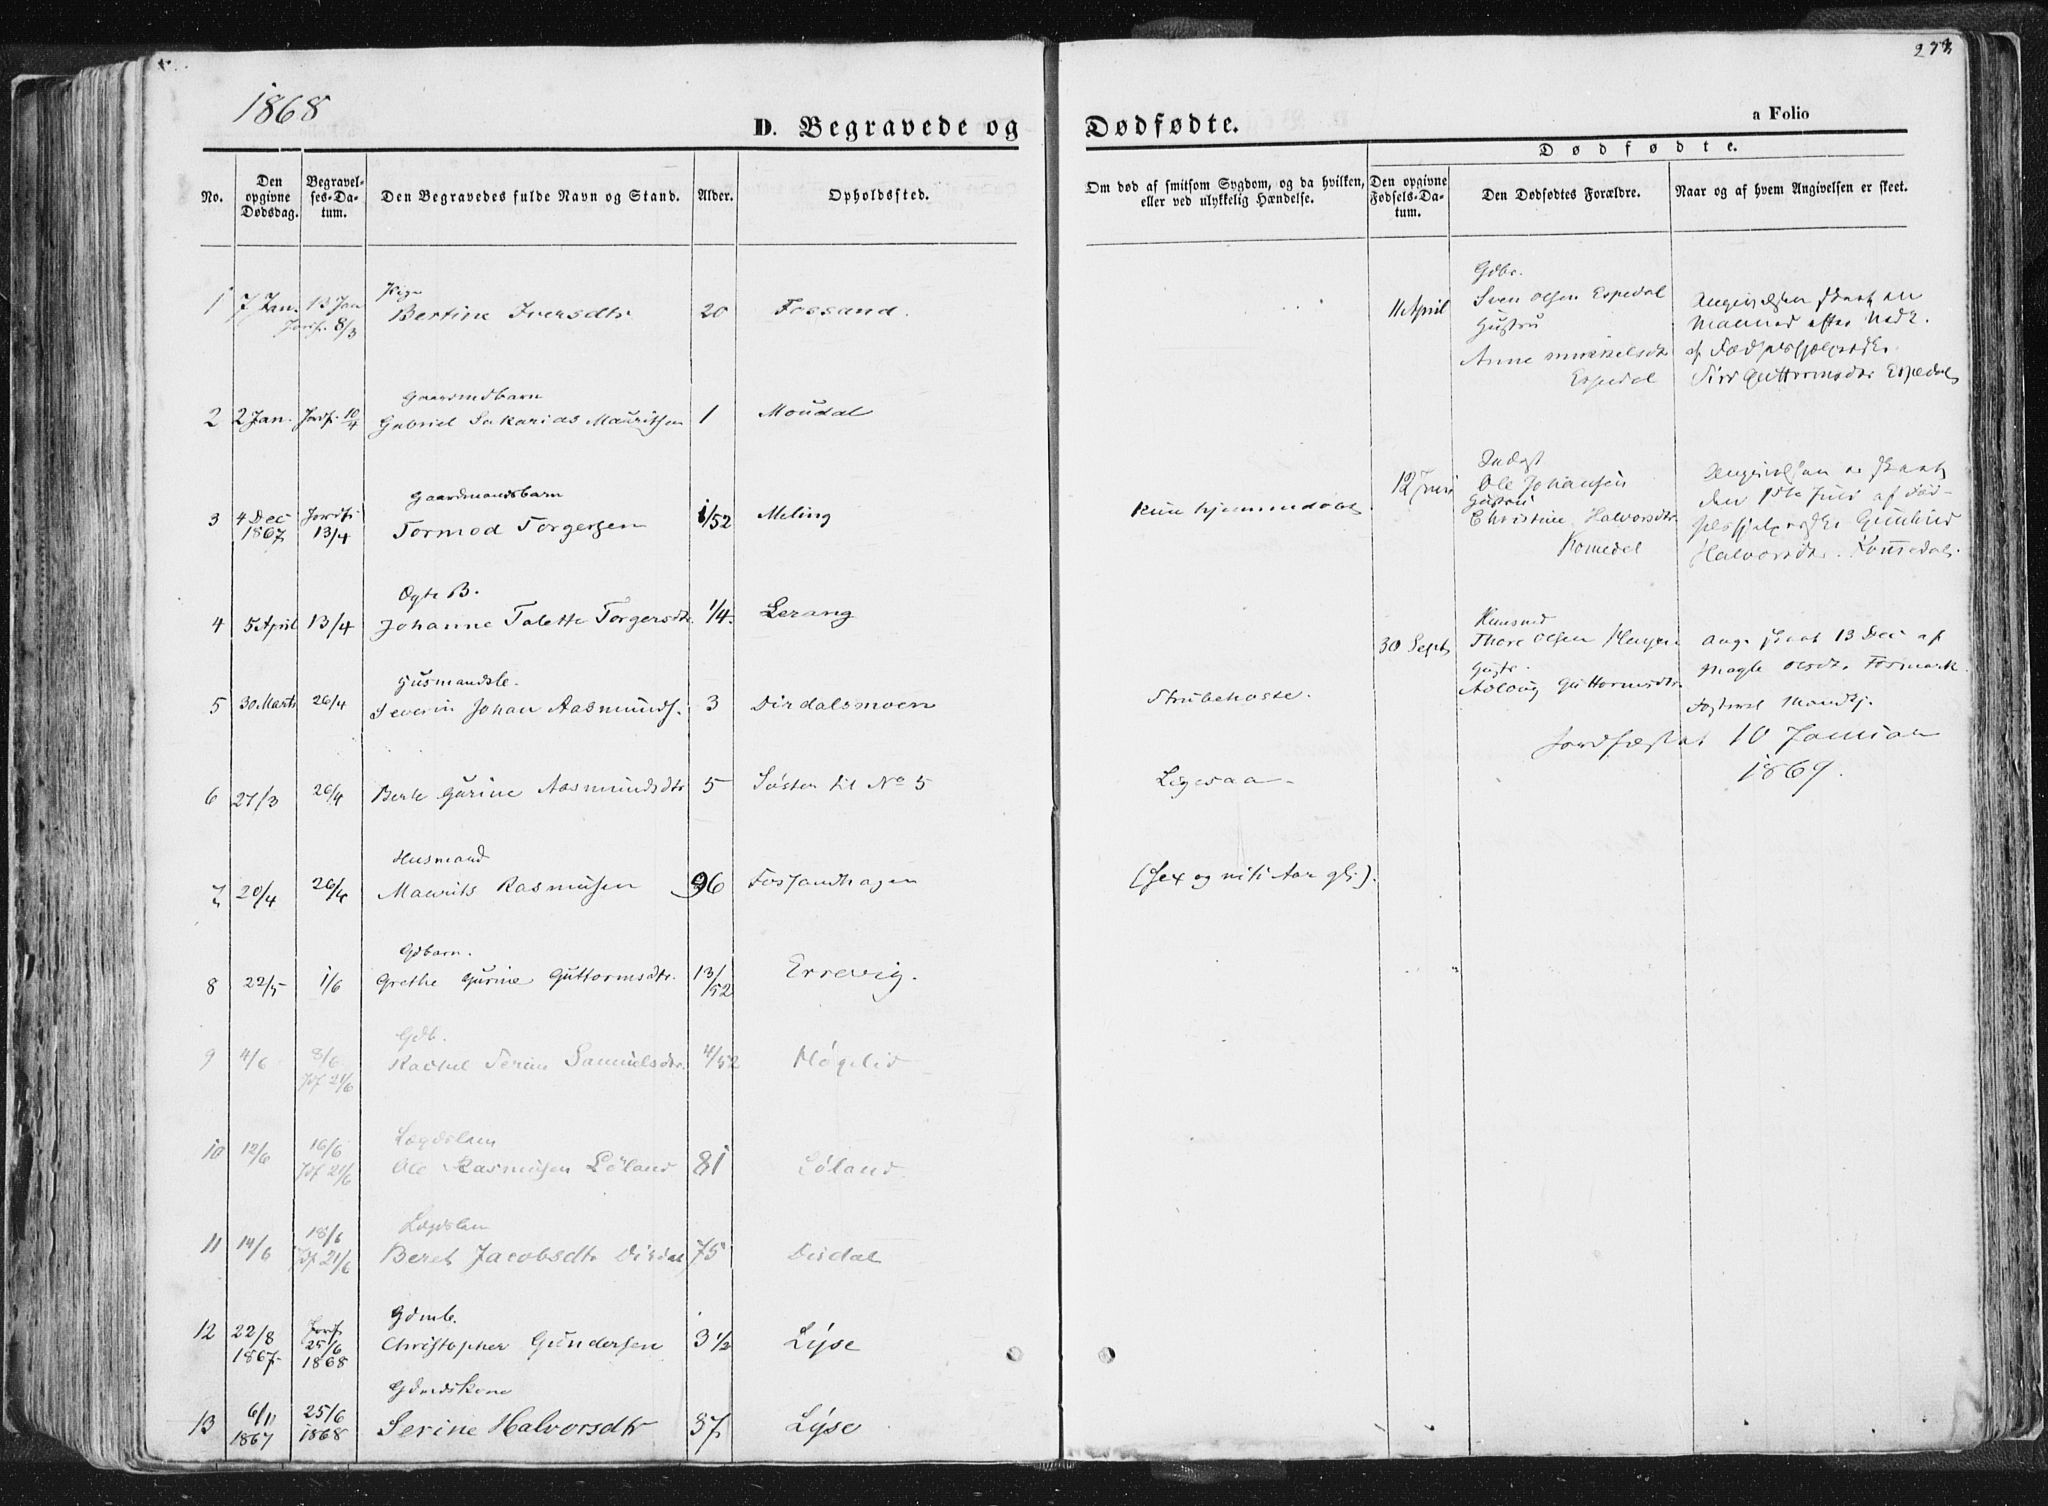 1868
D. Begravede og
No.
Den opgivne Dødsdag.
Begravelses-Datum.
Den Begravedes fulde Navn og Stand.
Alder.
Opholdssted.
1 7 Jan. 13 Jan Jordf. 8/3 Pige Bertine Iversdtr 20 Fossand.
2 2 Jan. Jordf. 10/4 Gaardmdbarn Gabriel Sakarias Mauritsen 1 Moudal
3 4 Dec 1867 Jordf. 13/4 Gaardmandsbarn Tormod Torgersen 1/52 Meling
4 5 April 13/4 Ægte B. Johanne Talette Torgersdtr. 1/4. Lerang
5 30 Marts 26/4 Severin Johan Aasmunds. 3 Dirdalsmoen
6 27/3 26/4 Berte Gurine Aasmundsdtr 5 Søster til No 5
7 20/4 26/4 Husmand Maurits Rasmusen 96 Fossandhagen
8 22/5 1/6 Gdbarn. Grethe Gurine Guttormsdtr. 13/52 Errevig.
9 4/6 8/6 Jdf 21/6 Gdb. Rachel Serine Samuelsdtr. 4/52 Høgelid
10 12/6 16/6 Jdf 21/6 Lægdslem Ole Rasmusen Løland 81 Løland
11 14/6 18/6 Jdf 21/6 Lægdslem Beret Jacobsdtr Dirdal 75 Dirdal
12 22/8 1867 Jordf. 25/6 1868 Gdmb. Christopher Gundersen 3 1/2 Lyse
13 6/11 1867 25/6 1868 Serine Halvorsdtr 37 Lyse
Dødfødte.
a Folio
Om død af smitsom Sygdom, og da hvilken, eller ved ulykkelig Hændelse.
Dødfødte.
Den opgivne Fødsels-Datum.
Den Dødfødtes Forældre.
Naar og af hvem Angivelsen er skeet.
kun hjemmedøbt
Strubehoste.
Ligesaa
(sex og niti Aar gl.).
11 April
Gdbr.
Sven Olsen Espedal
Hustru
Anne Mikkelsdtr
Espedal
Angivelsen skeet en
Maaned efter Nedk.
af
Siri Guttormsdtr Espedal
12 Juni
Indst
Ole Johansen
Hustru
Christine Halvorsdtr
Komedal
Angivelsen er skeet
den 1ste Juli af Fød-
Gunhild
Halvorsdtr.
30 Sept
Thore Olsen
Hustr.
Aslaug Guttormsdtr.
Ang. skeet 13 Dec af
Magle Olsdtr.
Jordfæstet 10 Januar
1869.